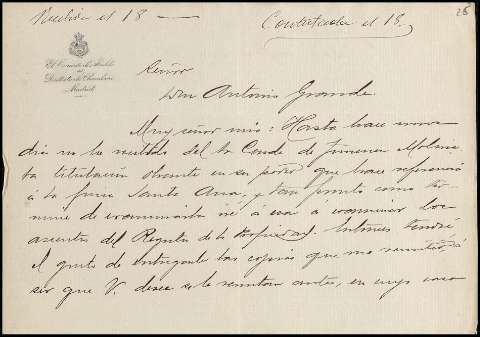 Recibida el 18 —
Contestada el 18.
26
El Comandante
Distrito de Chamberí
Madrid
Señor
Don Antonio Grande
Muy señor mio: Hasta hace unos
dias no he recibido del Sr Conde de Jimenez Molina
la titulación obrante en su poder que hace referencia
á la finca Santa Ana, y tan pronto como ter-
mine de examinarla iré á esa á examinar los
asientos del Registro de la Propiedad. Entonces tendré
el gusto de entregarle las copias que me remitió, á
ser que V. desee se le remitan antes, en cuyo caso